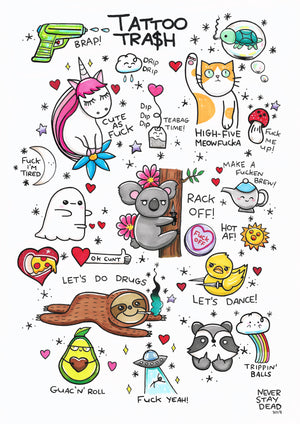 TATTOO
TRA$H
BRAP!
DRIP
DRIP
CUTE AS
FUCK
DIP
DIP
DIP
TEABAG
TIME!
HIGH-FIVE
MEOWFUCKA
FUCK
ME
UP!
FUCK
I'M
TIRED
MAKE A
FUCKEN
BREW!
RACK
OFF!
FUCK
OFF!
HOT
AF!
OK CUNT
LET'S DO DRUGS
LET'S DANCE!
GUAC 'N' ROLL
FUCK YEAH!
TRIPPIN'
BALLS
NEVER
STAY
DEAD